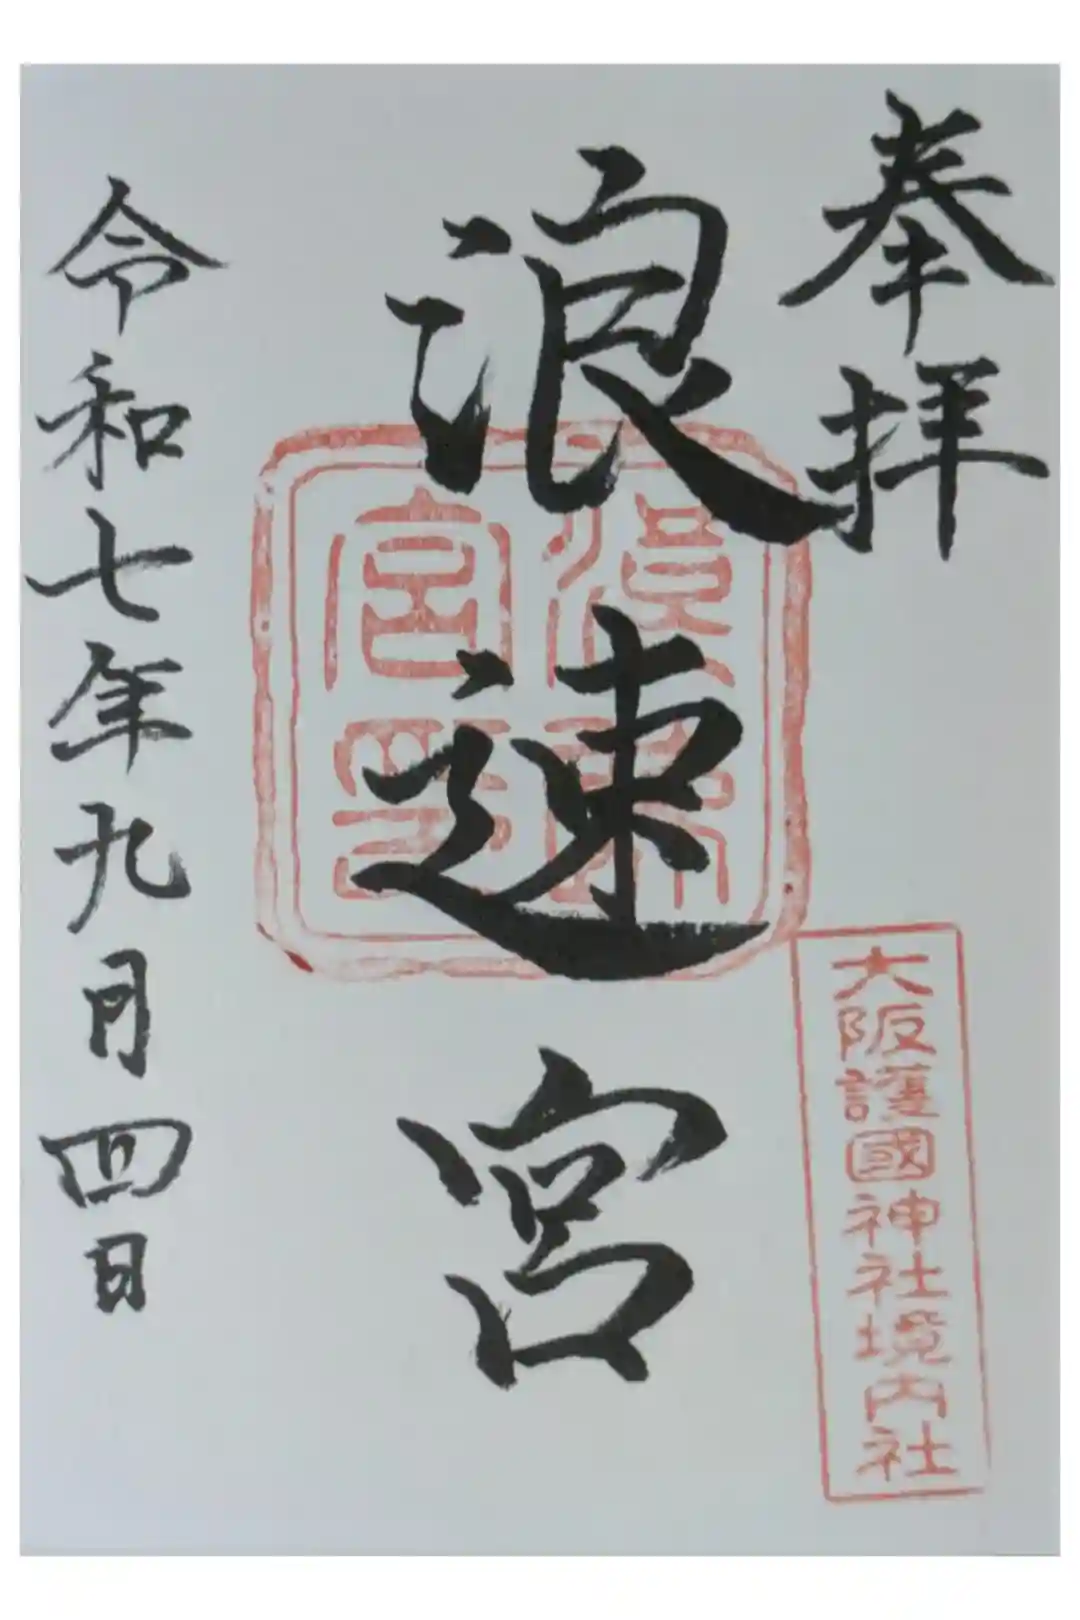 奉拝
大阪護國神社境内社
浪速宮
浪速宮印
令和七年九月四日